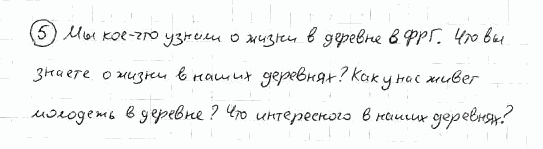 ⑤ Мы кое-что узнали о жизни в деревне в ФРГ. Что вы
знаете о жизни в наших деревнях? Как у нас живет
молодежь в деревне? Что интересного в наших деревнях?